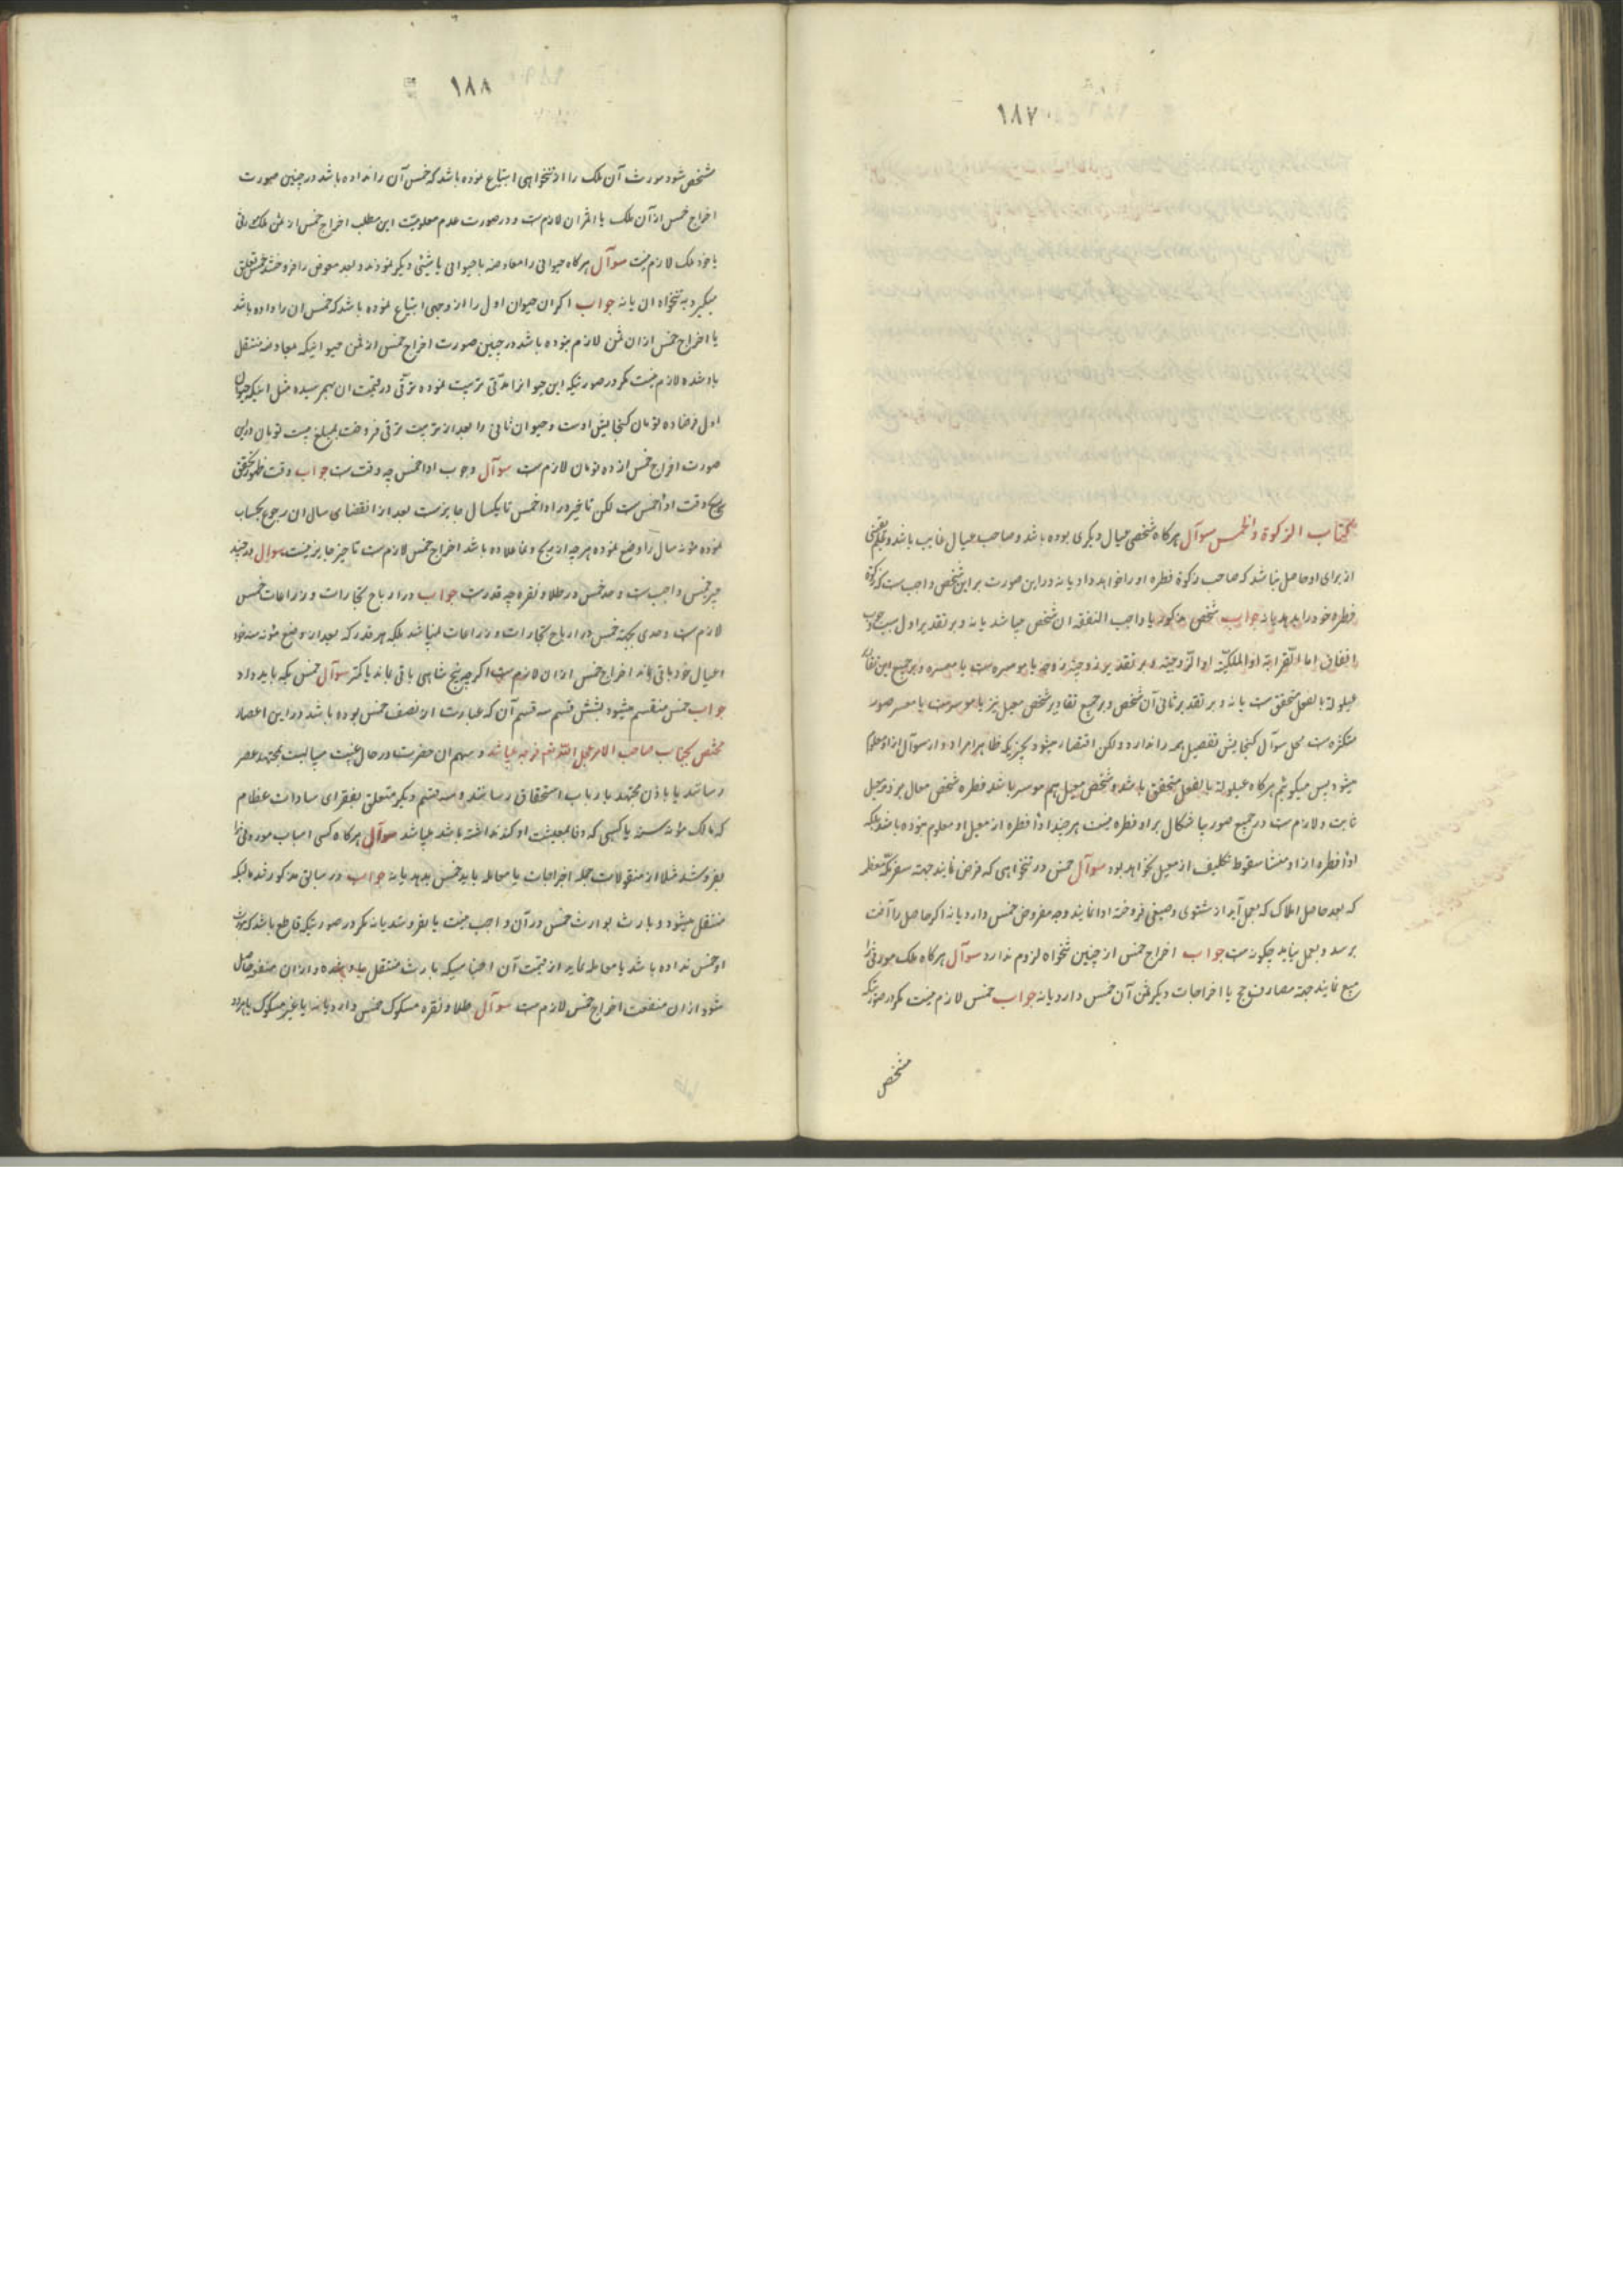 ١٨٧
كتاب الزكوة والخمس سوآل هركاه شخصى عيال ديكرى بوده باشد و صاحب عيال غايب باشد و علم يقينى
از براى او حاصل نباشد كه صاحب زكوة فطره او را خواهد داد يا نه در اين صورت بر اين شخص واجب ست كه زكوة
فطره خود را بدهد يا نه جواب شخص مذكور يا واجب النفقه ان شخص ميباشد يا نه و بر تقدير اول سبب وجوب
انفاق اما القرابة او الملكيّة او الزّوجيّة و بر تقدير زوجيّة زوجه يا موسره ست يا معسره و بر جميع اين تقادير
عيلولة بالفعل متحقق ست يا نه و بر تقدير ثانى آن شخص و بر جميع تقادير شخص معيل نيز يا موسر ست يا معسر صور
متكثره ست محل سوآل كنجايش تفصيل همه را ندارد و لكن اقتصار ميشود بچيزيكه ظاهرا مراد و از سوآل
ميشود پس ميكوئيم هركاه عيلولة بالفعل متحقق باشد و شخص معيل هم موسر باشد فطره شخص معال بر ذمه معيل
ثابت و لازم ست در جميع صور بلا اشكال بر او فطره نيست هر چند اداء فطره از معيل او معلوم نبوده باشد بلكه
اداء فطره از او منشا سقوط تكليف از معيل نخواهد بود سوآل خمس در تنخواهى كه قرض نمايند جهة سفر مكه معظمه
كه بعد حاصل املاك كه بعمل آيد از شتوى و صيفى فروخته ادا نمايند وجه مقروض خمس دارد يا نه اكر حاصل را آفت
برسد و بعمل نيايد چكونه ست جواب اخراج خمس از چنين تنخواه لزوم ندارد سوآل هركاه ملك موروثى را
بيع نمايند جهة مصارف حج يا اخراجات ديكر ثمن آن خمس دارد يا نه جواب خمس لازم نيست مكر در صورتيكه
مشخص
١٨٨
مشخص شود مورث آن ملك را از تنخواهى ابتياع نموده باشد كه خمس آن را نداده باشد در چنين صورت
اخراج خمس از آن ملك يا اثمان لازم ست و در صورت عدم معلوميّت اين مطلب اخراج خمس از ثمن ملك موروثى
يا خود ملك لازم نيست سوآل هركاه حيوانى را معاوضه با حيوانى يا شيئى ديكر نمودند و بعد معوض را فروختند خمس تعلق
ميكيرد به تنخواه ان يا نه جواب اكر ان حيوان اول را از وجهى ابتياع نموده باشد كه خمس ان را داده باشد
يا اخراج خمس از ان ثمن لازم نبوده باشد در چنين صورت اخراج خمس از ثمن حيوانيكه بمعاوضه منتقل
باو شده لازم نيست مكر در صورتيكه اين حيوان را مدتى تربيت نموده ترقى در قيمت ان بهم رسيده مثل اينكه حيوان
اول فرضا ده تومان كنجايش اوست و حيوان ثانى را بعد از تربيت ترقى فروخت بمبلغ بيست تومان در اين
صورت اخراج خمس از ده تومان لازم ست سوآل وجوب اداء خمس چه وقت ست جواب وقت ظهور تحقق
ربح وقت اداء خمس ست لكن تاخير در اداء خمس تا يكسال جايز ست بعد از انقضاى سال ان رجوع بحساب
نموده مؤنه سال را وضع نموده هر چه از ربح و نما علاوه باشد اخراج خمس لازم ست تاخير جايز نيست سوال در چند
چيز خمس واجب ست و حد خمس در طلا و نقره چه قدر ست جواب در ارباح تجارات و زراعات خمس
لازم ست و حدى بجهة خمس در ارباح تجارات و زراعات نميباشد بلكه هر قدر كه بعد از وضع مؤنه سنه خود
و عيال خود باقى ماند اخراج خمس از ان لازم ست اكر چه پنج شاهى باقى ماند يا كمتر سوآل خمس بكه بايد داد
جواب خمس منقسم ميشود بشش قسم سه قسم آن كه عبارت از نصف خمس بوده باشد در اين اعصار
مختص بجناب صاحب الامر عجل الله فرجه ميباشد و سهم ان حضرت در حال غيبت ميبايست بمجتهد عصر
رسانند يا باذن مجتهد بارباب استحقاق رسانند و سه قسم ديكر متعلق بفقراى سادات عظام
كه مالك مؤنه سنه يا كسبى كه وفا بمعيشت او كند نداشته باشد ميباشد سوآل هركاه كسى اسباب موروثى را
بفروشد مثلا از منقولات جمله اخراجات يا معامله بايد خمس بدهد يا نه جواب در سابق مذكور شد ماليكه
منتقل ميشود و بارث بوارث خمس در آن واجب نيست يا بفروشد يا نه مكر در صورتيكه قاطع باشد كه مورث
او خمس نداده باشد يا معامله نمايد از قيمت آن اجناسيكه بارث منتقل باو شده و از ان منفعت حاصل
شود از ان منفعت اخراج خمس لازم ست سوآل طلا و نقره مسكوك خمس دارد يا نه يا غير مسكوك